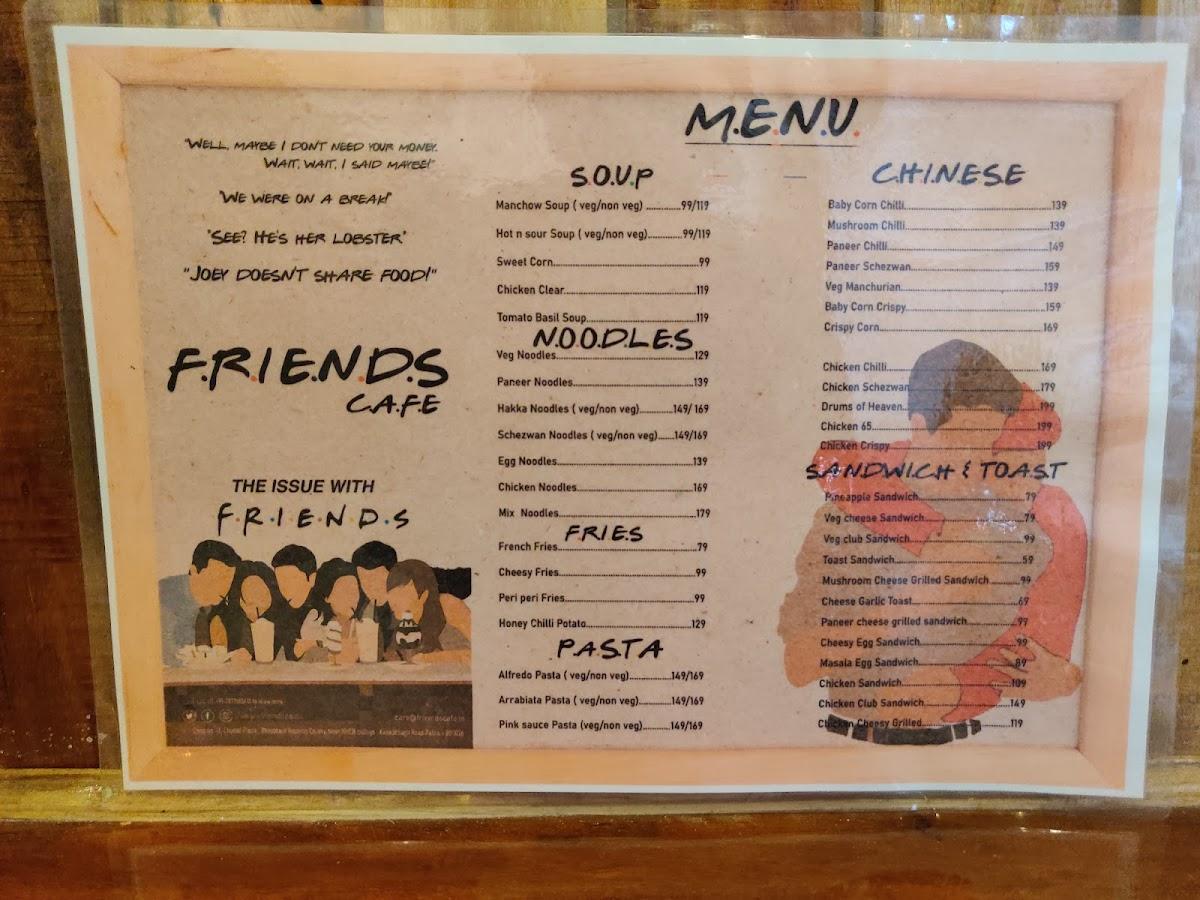 "WELL, MAYBE I DON'T NEED YOUR MONEY.
WAIT, WAIT, I SAID MAYBE!"
"WE WERE ON A BREAK!"
"SEE? HE'S HER LOBSTER"
"JOEY DOESN'T SHARE FOOD!"
F.R.I.E.N.D.S
C.A.F.E
THE ISSUE WITH
F·R·I·E·N·D·S
care@friendscafe.in
M.E.N.U.
S.O.U.P
Manchow Soup ( veg/non veg) ............99/119
Hot n sour Soup ( veg/non veg)............99/119
Sweet Corn............99
Chicken Clear............119
Tomato Basil Soup............119
N.O.O.D.L.E.S
Veg Noodles............129
Paneer Noodles............139
Hakka Noodles ( veg/non veg)............149/ 169
Schezwan Noodles ( veg/non veg)......149/169
Egg Noodles............139
Chicken Noodles............169
Mix Noodles............179
F.R.I.E.S
French Fries............79
Cheesy Fries............99
Peri peri Fries............99
Honey Chilli Potato............129
P.A.S.T.A
Alfredo Pasta ( veg/non veg)............149/169
Arrabiata Pasta ( veg/non veg)............149/169
Pink sauce Pasta (veg/non veg)............149/169
C.H.I.N.E.S.E
Baby Corn Chilli............139
Mushroom Chilli............139
Paneer Chilli............149
Paneer Schezwan............159
Veg Manchurian............139
Baby Corn Crispy............159
Crispy Corn............169
Chicken Chilli............169
Chicken Schezwan............179
Drums of Heaven............199
Chicken 65............199
Chicken Crispy............199
S.A.N.D.W.I.C.H & T.O.A.S.T
Pineapple Sandwich............79
Veg cheese Sandwich............79
Veg club Sandwich............99
Toast Sandwich............59
Mushroom Cheese Grilled Sandwich ............99
Cheese Garlic Toast............69
Paneer cheese grilled sandwich............99
Cheesy Egg Sandwich............99
Masala Egg Sandwich............89
Chicken Sandwich............109
Chicken Club Sandwich............149
Chicken Cheesy Grilled............119